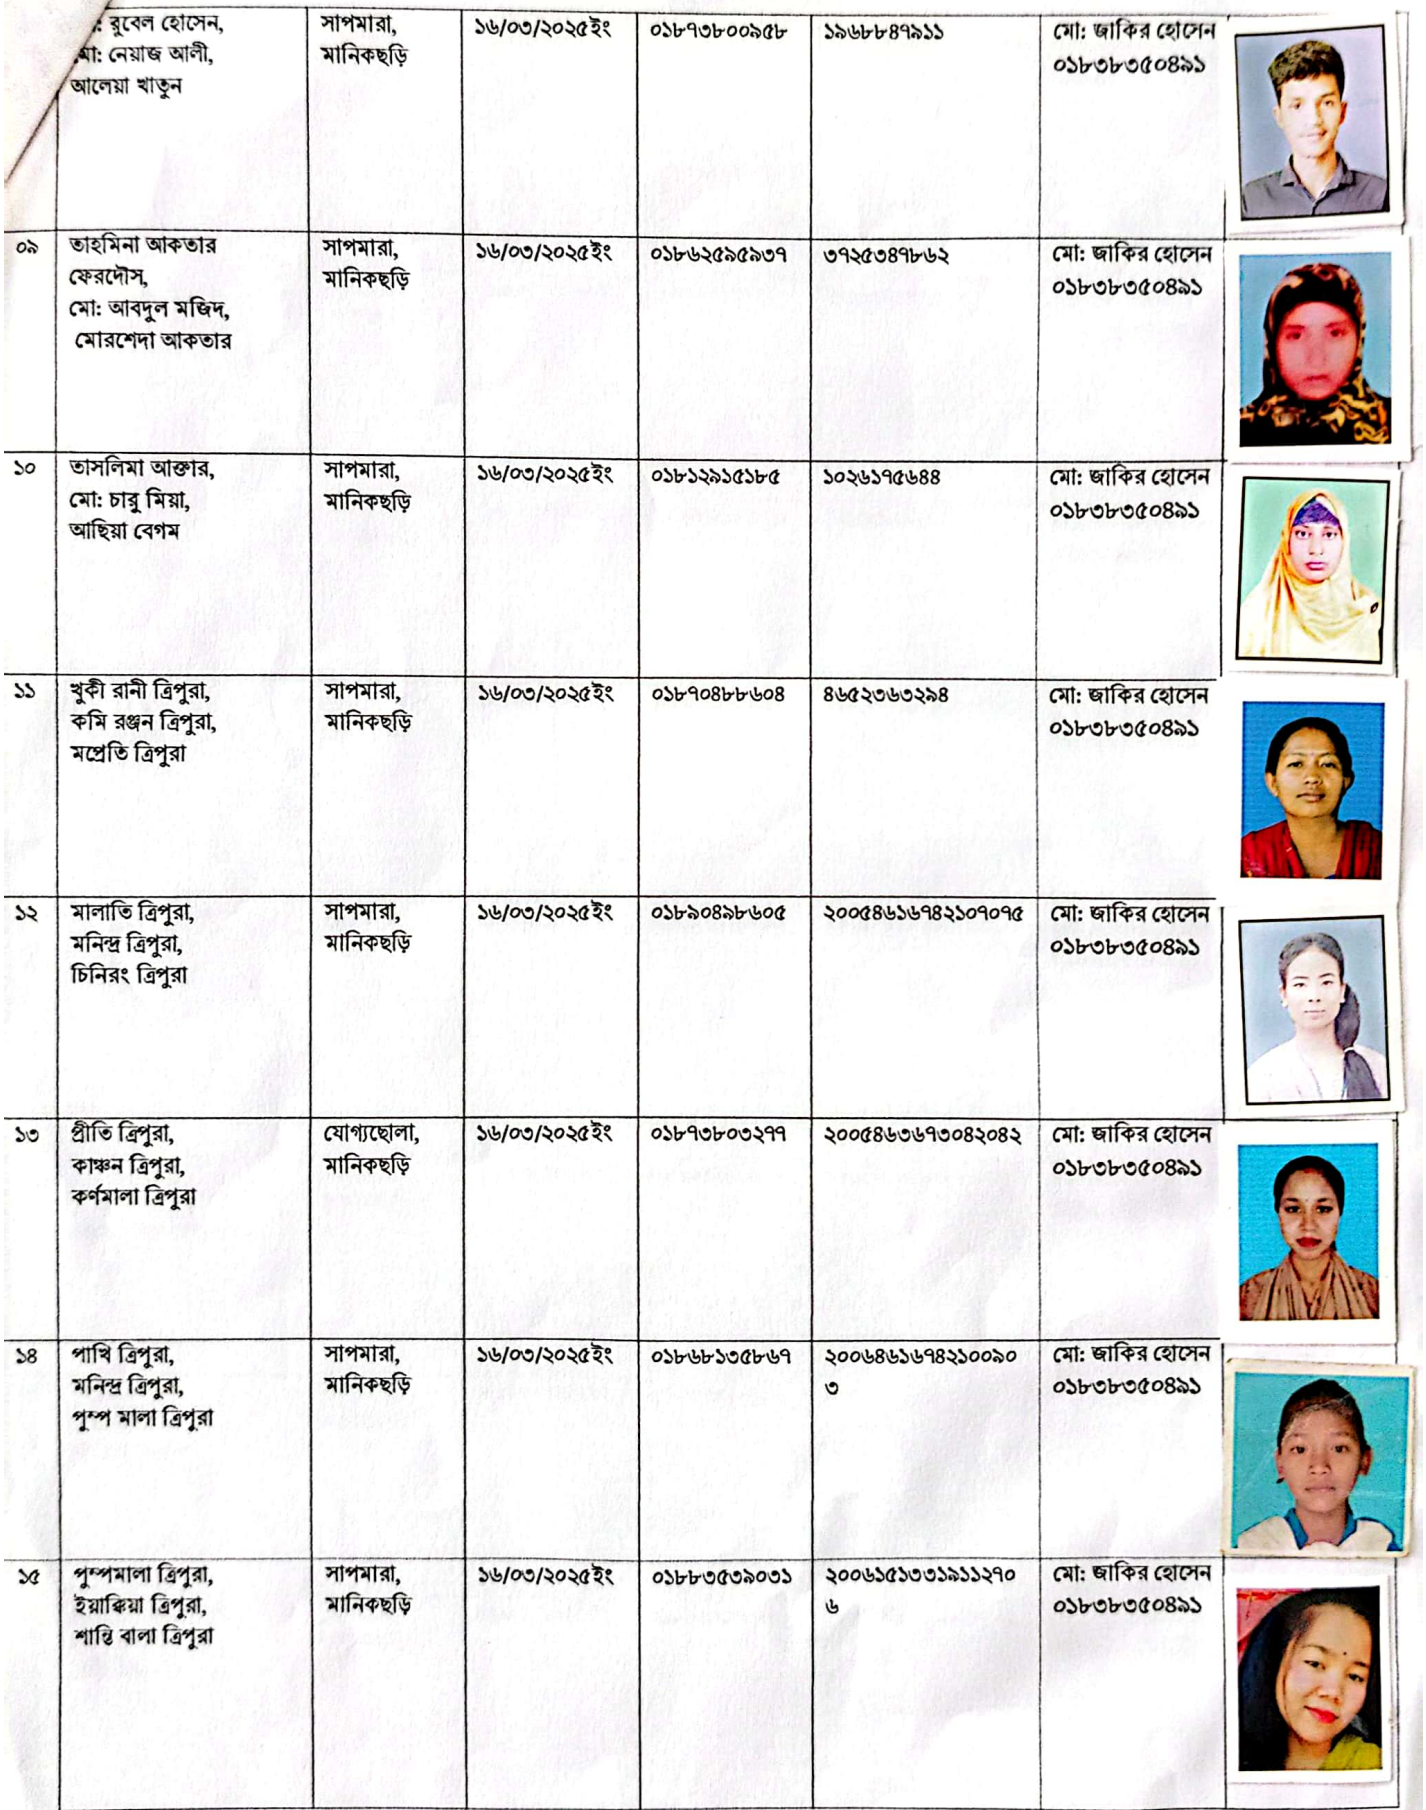 : রুবেল হোসেন,
মো: নেয়াজ আলী,
আলেয়া খাতুন
সাপমারা,
মানিকছড়ি
১৬/০৩/২০২৫ইং
০১৮৭৩৮০০৯৫৮
১৯৬৮৮৪৭৯১১
মো: জাকির হোসেন
০১৮৩৮৩৫০৪৯১
০৯
তাহমিনা আকতার
ফেরদৌস,
মো: আবদুল মজিদ,
মোরশেদা আকতার
সাপমারা,
মানিকছড়ি
১৬/০৩/২০২৫ইং
০১৮৬২৫৯৫৯৩৭
৩৭২৫৩৪৭৮৬২
মো: জাকির হোসেন
০১৮৩৮৩৫০৪৯১
১০
তাসলিমা আক্তার,
মো: চারু মিয়া,
আছিয়া বেগম
সাপমারা,
মানিকছড়ি
১৬/০৩/২০২৫ইং
০১৮১২৯১৫১৮৫
১০২৬১৭৫৬৪৪
মো: জাকির হোসেন
০১৮৩৮৩৫০৪৯১
১১
খুকী রানী ত্রিপুরা,
কমি রঞ্জন ত্রিপুরা,
মপ্রেতি ত্রিপুরা
সাপমারা,
মানিকছড়ি
১৬/০৩/২০২৫ইং
০১৮৭০৪৮৮৬০৪
৪৬৫২৩৬৩২৯৪
মো: জাকির হোসেন
০১৮৩৮৩৫০৪৯১
১২
মালাতি ত্রিপুরা,
মনিন্দ্র ত্রিপুরা,
চিনিরং ত্রিপুরা
সাপমারা,
মানিকছড়ি
১৬/০৩/২০২৫ইং
০১৮৯০৪৯৮৬০৫
২০০৫৪৬১৬৭৪২১০৭০৭৫
মো: জাকির হোসেন
০১৮৩৮৩৫০৪৯১
১৩
প্রীতি ত্রিপুরা,
কাঞ্চন ত্রিপুরা,
কর্ণমালা ত্রিপুরা
যোগ্যছোলা,
মানিকছড়ি
১৬/০৩/২০২৫ইং
০১৮৭৩৮০৩২৭৭
২০০৫৪৬৩৬৭৩০৪২০৪২
মো: জাকির হোসেন
০১৮৩৮৩৫০৪৯১
১৪
পাখি ত্রিপুরা,
মনিন্দ্র ত্রিপুরা,
পুষ্প মালা ত্রিপুরা
সাপমারা,
মানিকছড়ি
১৬/০৩/২০২৫ইং
০১৮৬৮১৩৫৮৬৭
২০০৬৪৬১৬৭৪২১০০৯০
৩
মো: জাকির হোসেন
০১৮৩৮৩৫০৪৯১
১৫
পুষ্পমালা ত্রিপুরা,
ইয়াক্কিয়া ত্রিপুরা,
শান্তি বালা ত্রিপুরা
সাপমারা,
মানিকছড়ি
১৬/০৩/২০২৫ইং
০১৮৮৩৫৩৯০৩১
২০০৬১৫১৩৩১৯১১২৭০
৬
মো: জাকির হোসেন
০১৮৩৮৩৫০৪৯১